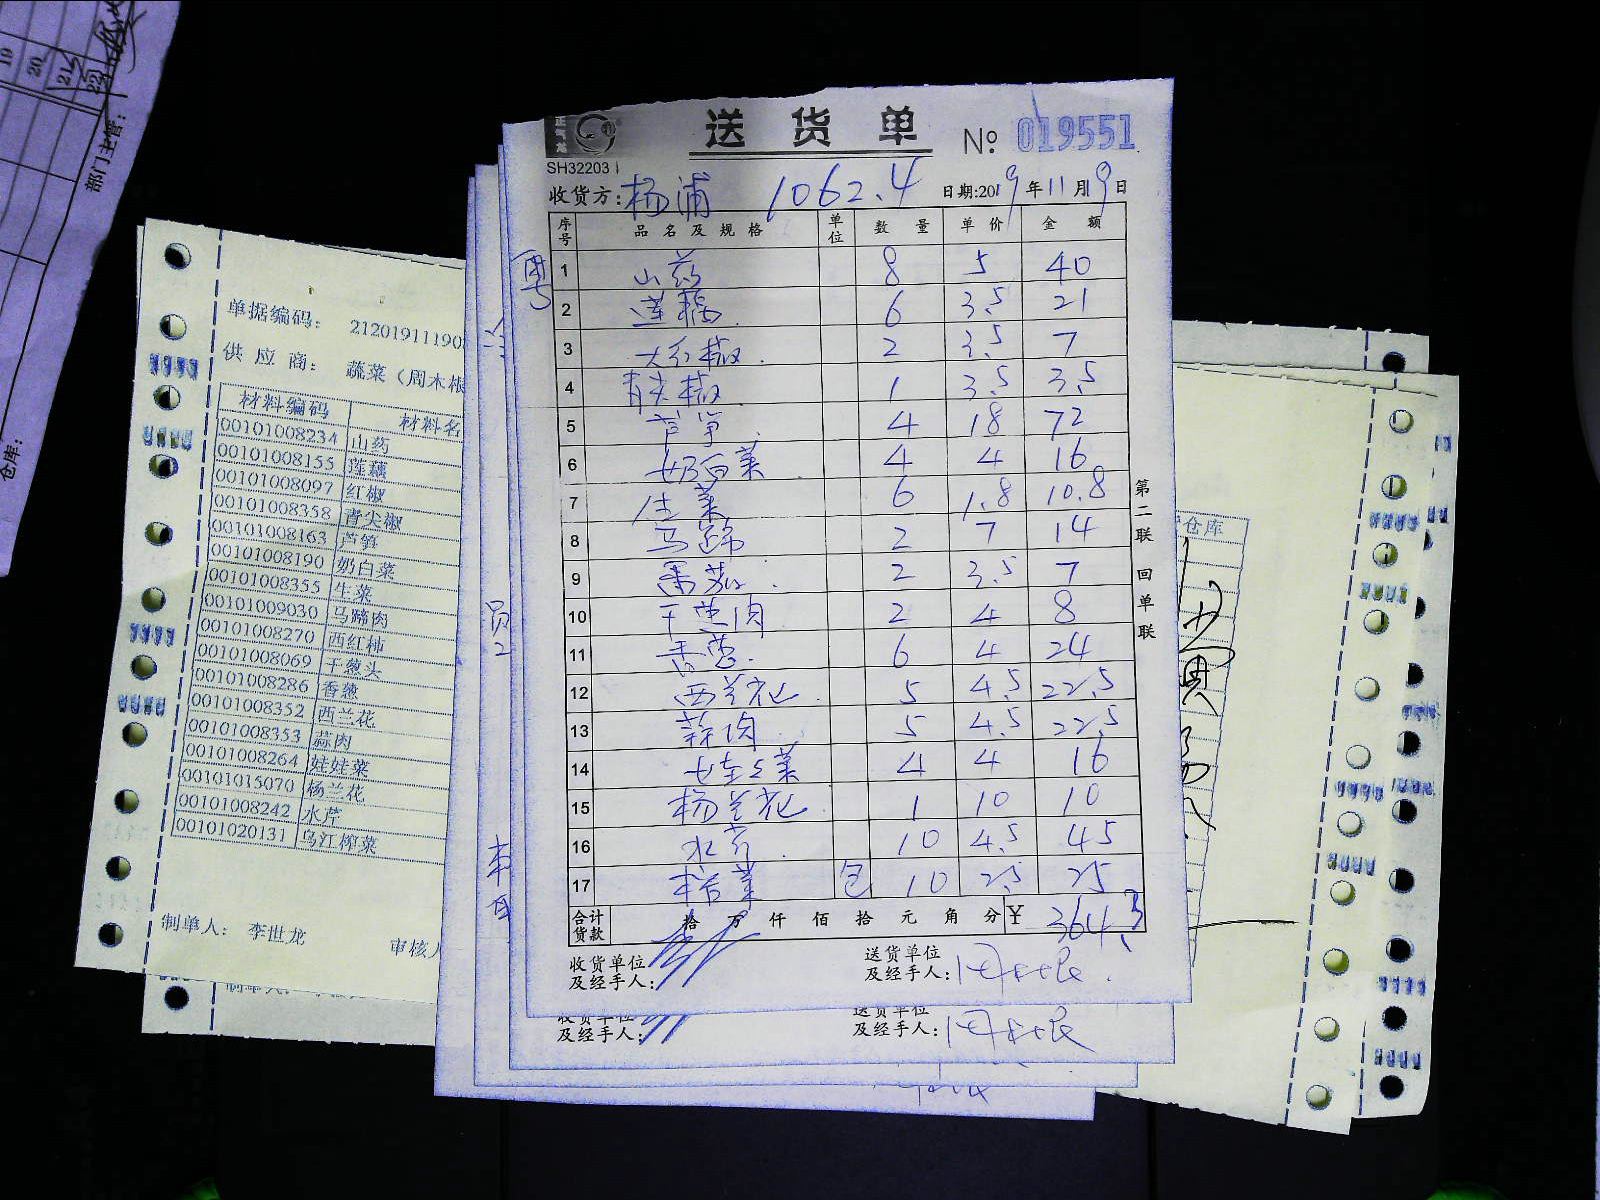 19
20
21
22
部门主管：
仓库：
单据编码： 2120191119
供 应 商： 蔬菜（周木根
材料编码 材料名
00101008234 山药
00101008155 莲藕
00101008097 红椒
00101008358 青尖椒
00101008163 芦笋
00101008190 奶白菜
00101008355 生菜
00101009030 马蹄肉
00101008270 西红柿
00101008069 干葱头
00101008286 香葱
00101008352 西兰花
00101008353 蒜肉
00101008264 娃娃菜
00101015070 杨兰花
00101008242 水芹
00101020131 乌江榨菜
制单人： 李世龙 审核人
正气龙
送 货 单 № 019551
SH32203
收货方：杨浦 1062.4 日期:2019年11月9日
序号 品名及规格 单位 数量 单价 金额
1 山药 8 5 40
2 莲藕 6 3.5 21
3 大红椒 2 3.5 7
4 青尖椒 1 3.5 3.5
5 芦笋 4 18 72
6 奶白菜 4 4 16
7 生菜 6 1.8 10.8
8 马蹄 2 7 14
9 番茄 2 3.5 7
10 干葱肉 2 4 8
11 香葱 6 4 24
12 西兰花 5 4.5 22.5
13 蒜肉 5 4.5 22.5
14 娃娃菜 4 4 16
15 杨兰花 1 10 10
16 水芹 10 4.5 45
17 榨菜 包 10 2.5 25
合计货款 拾 万 仟 佰 拾 元 角 分 ¥ 364.3
收货单位及经手人： 送货单位及经手人：
第二联 回单联
及经手人： 及经手人：
仓库